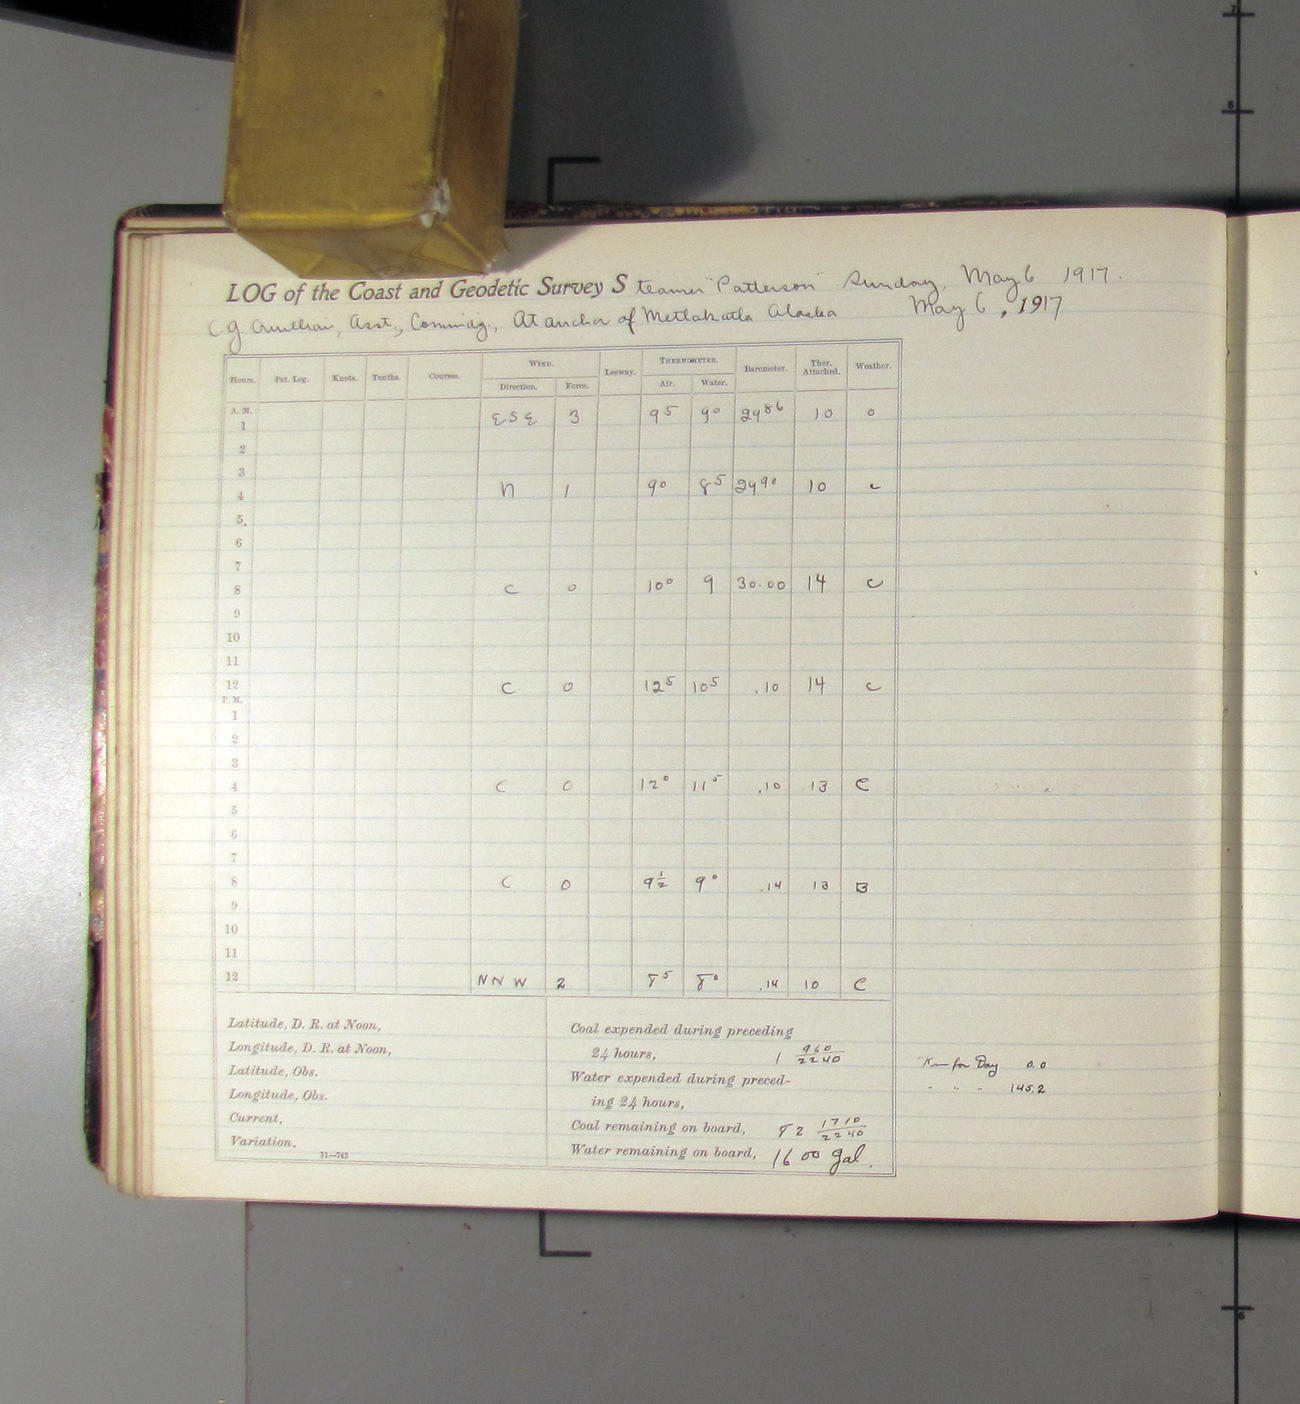 LOG of the Coast and Geodetic Survey Steamer "Patterson" Sunday, May 6 1917.
C. G. Asst., Commdg., At anchor of Metlakatla Alaska May 6, 1917
Hours. Pat. Log. Knots. Tenths. Courses. WIND. Leeway. THERMOMETER. Barometer. Ther. Attached. Weather.
Direction. Force. Air. Water.
A. M.
1 ESE 3 9⁵ 9⁰ 29⁸⁶ 10 o
2
3
4 N 1 9⁰ 8⁵ 29⁹⁰ 10 c
5.
6
7
8 C 0 10⁰ 9 30.00 14 c
9
10
11
12 C 0 12⁵ 10⁵ .10 14 c
P. M.
1
2
3
4 C 0 12⁰ 11⁵ .10 13 C
5
6
7
8 C 0 9½ 9⁰ .14 13 B
9
10
11
12 NNW 2 8⁵ 8⁰ .14 10 C
Latitude, D. R. at Noon,
Longitude, D. R. at Noon,
Latitude, Obs.
Longitude, Obs.
Current,
Variation.
11—743
Coal expended during preceding
24 hours, 1 960/2240
Water expended during preced-
ing 24 hours,
Coal remaining on board, 82 1710/2240
Water remaining on board, 1600 gal.
for Day 0.0
" " " 145.2
7
6
6